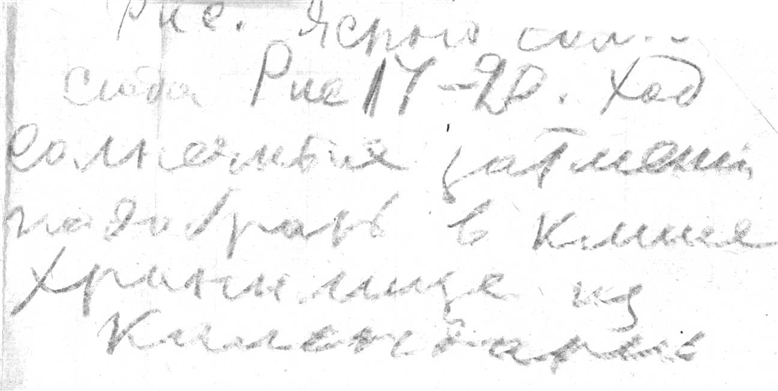 Рис. Ясного сол...
сюда Рис 17-20. Ход
солнечные затмени
подобрать в книге
хранилище из
Календарей